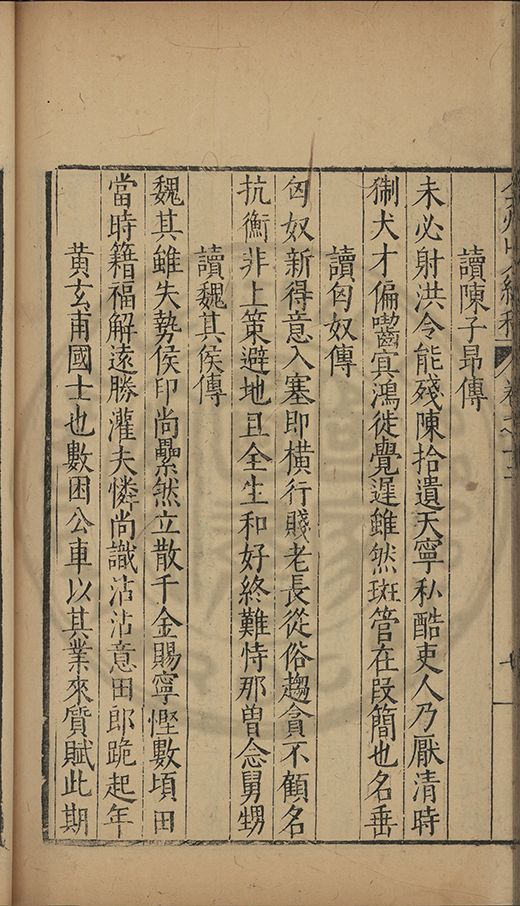 讀陳子昂傳
未必射洪令能殘陳拾遺天寧私酷吏人乃厭清時
猘犬才偏囓㝠鴻徒覺遲雖然斑管在段簡也名垂
讀匈奴傳
匈奴新得意入塞即橫行賤老長從俗趨貪不顧名
抗衡非上策避地且全生和好終難恃那曽念舅甥
讀魏其侯傳
魏其雖失勢侯印尚纍然立散千金賜寧慳數頃田
當時籍福解遠勝灌夫憐尚識沾沾意田郎跪起年
黄玄甫國士也數困公車以其業來質賦此期